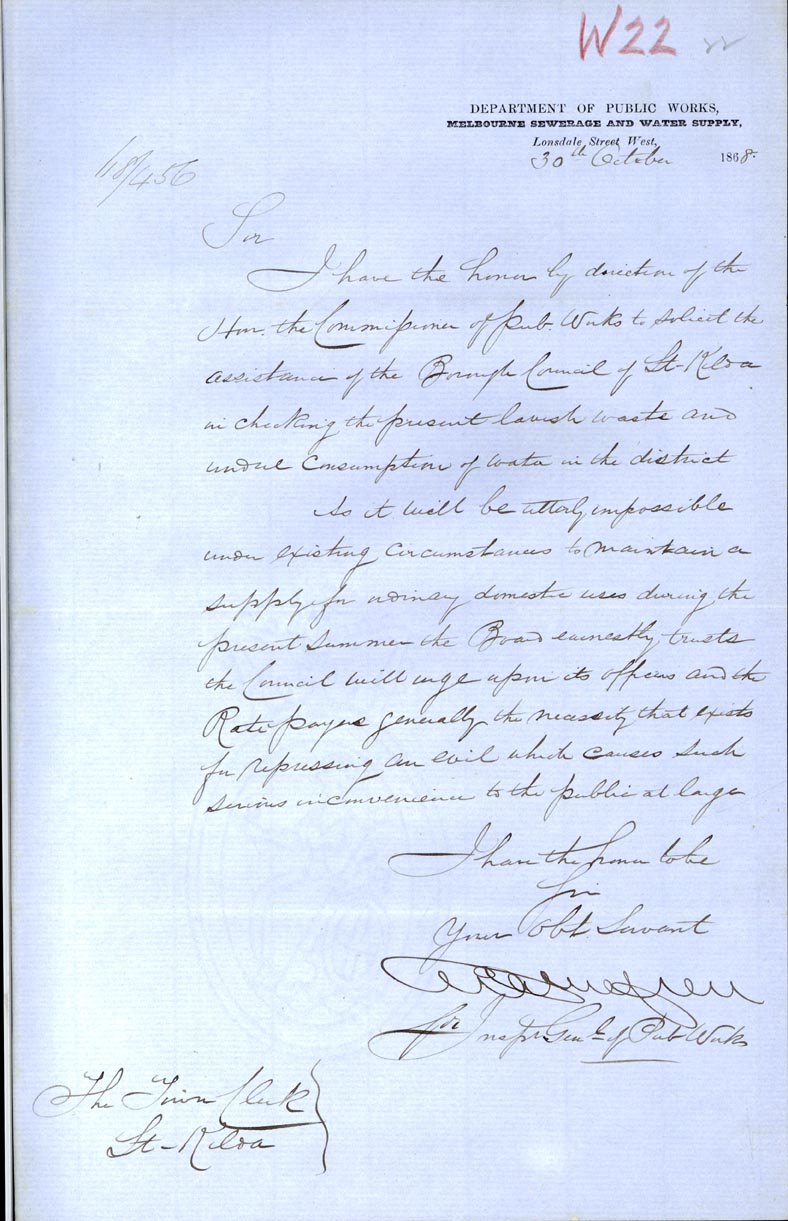 W22
DEPARTMENT OF PUBLIC WORKS,
MELBOURNE SEWERAGE AND WATER SUPPLY,
Lonsdale Street West,
30th October 1868.
68/456
Sir
I have the honor by direction of the
Hon. the Commissioner of Pub. Works to solicit the
assistance of the Borough Council of St-Kilda
in checking the present lavish waste and
undue consumption of water in the district
As it will be utterly impossible
under existing circumstances to maintain a
supply for ordinary domestic uses during the
present summer the Board earnestly trusts
the Council will urge upon its officers and the
Rate payers generally the necessity that exists
for repressing an evil which causes such
serious inconvenience to the public at large
I have the honor to be
Sir
Your obt Servant
for Inspr Genl of Pub Works
The Town Clerk
St-Kilda